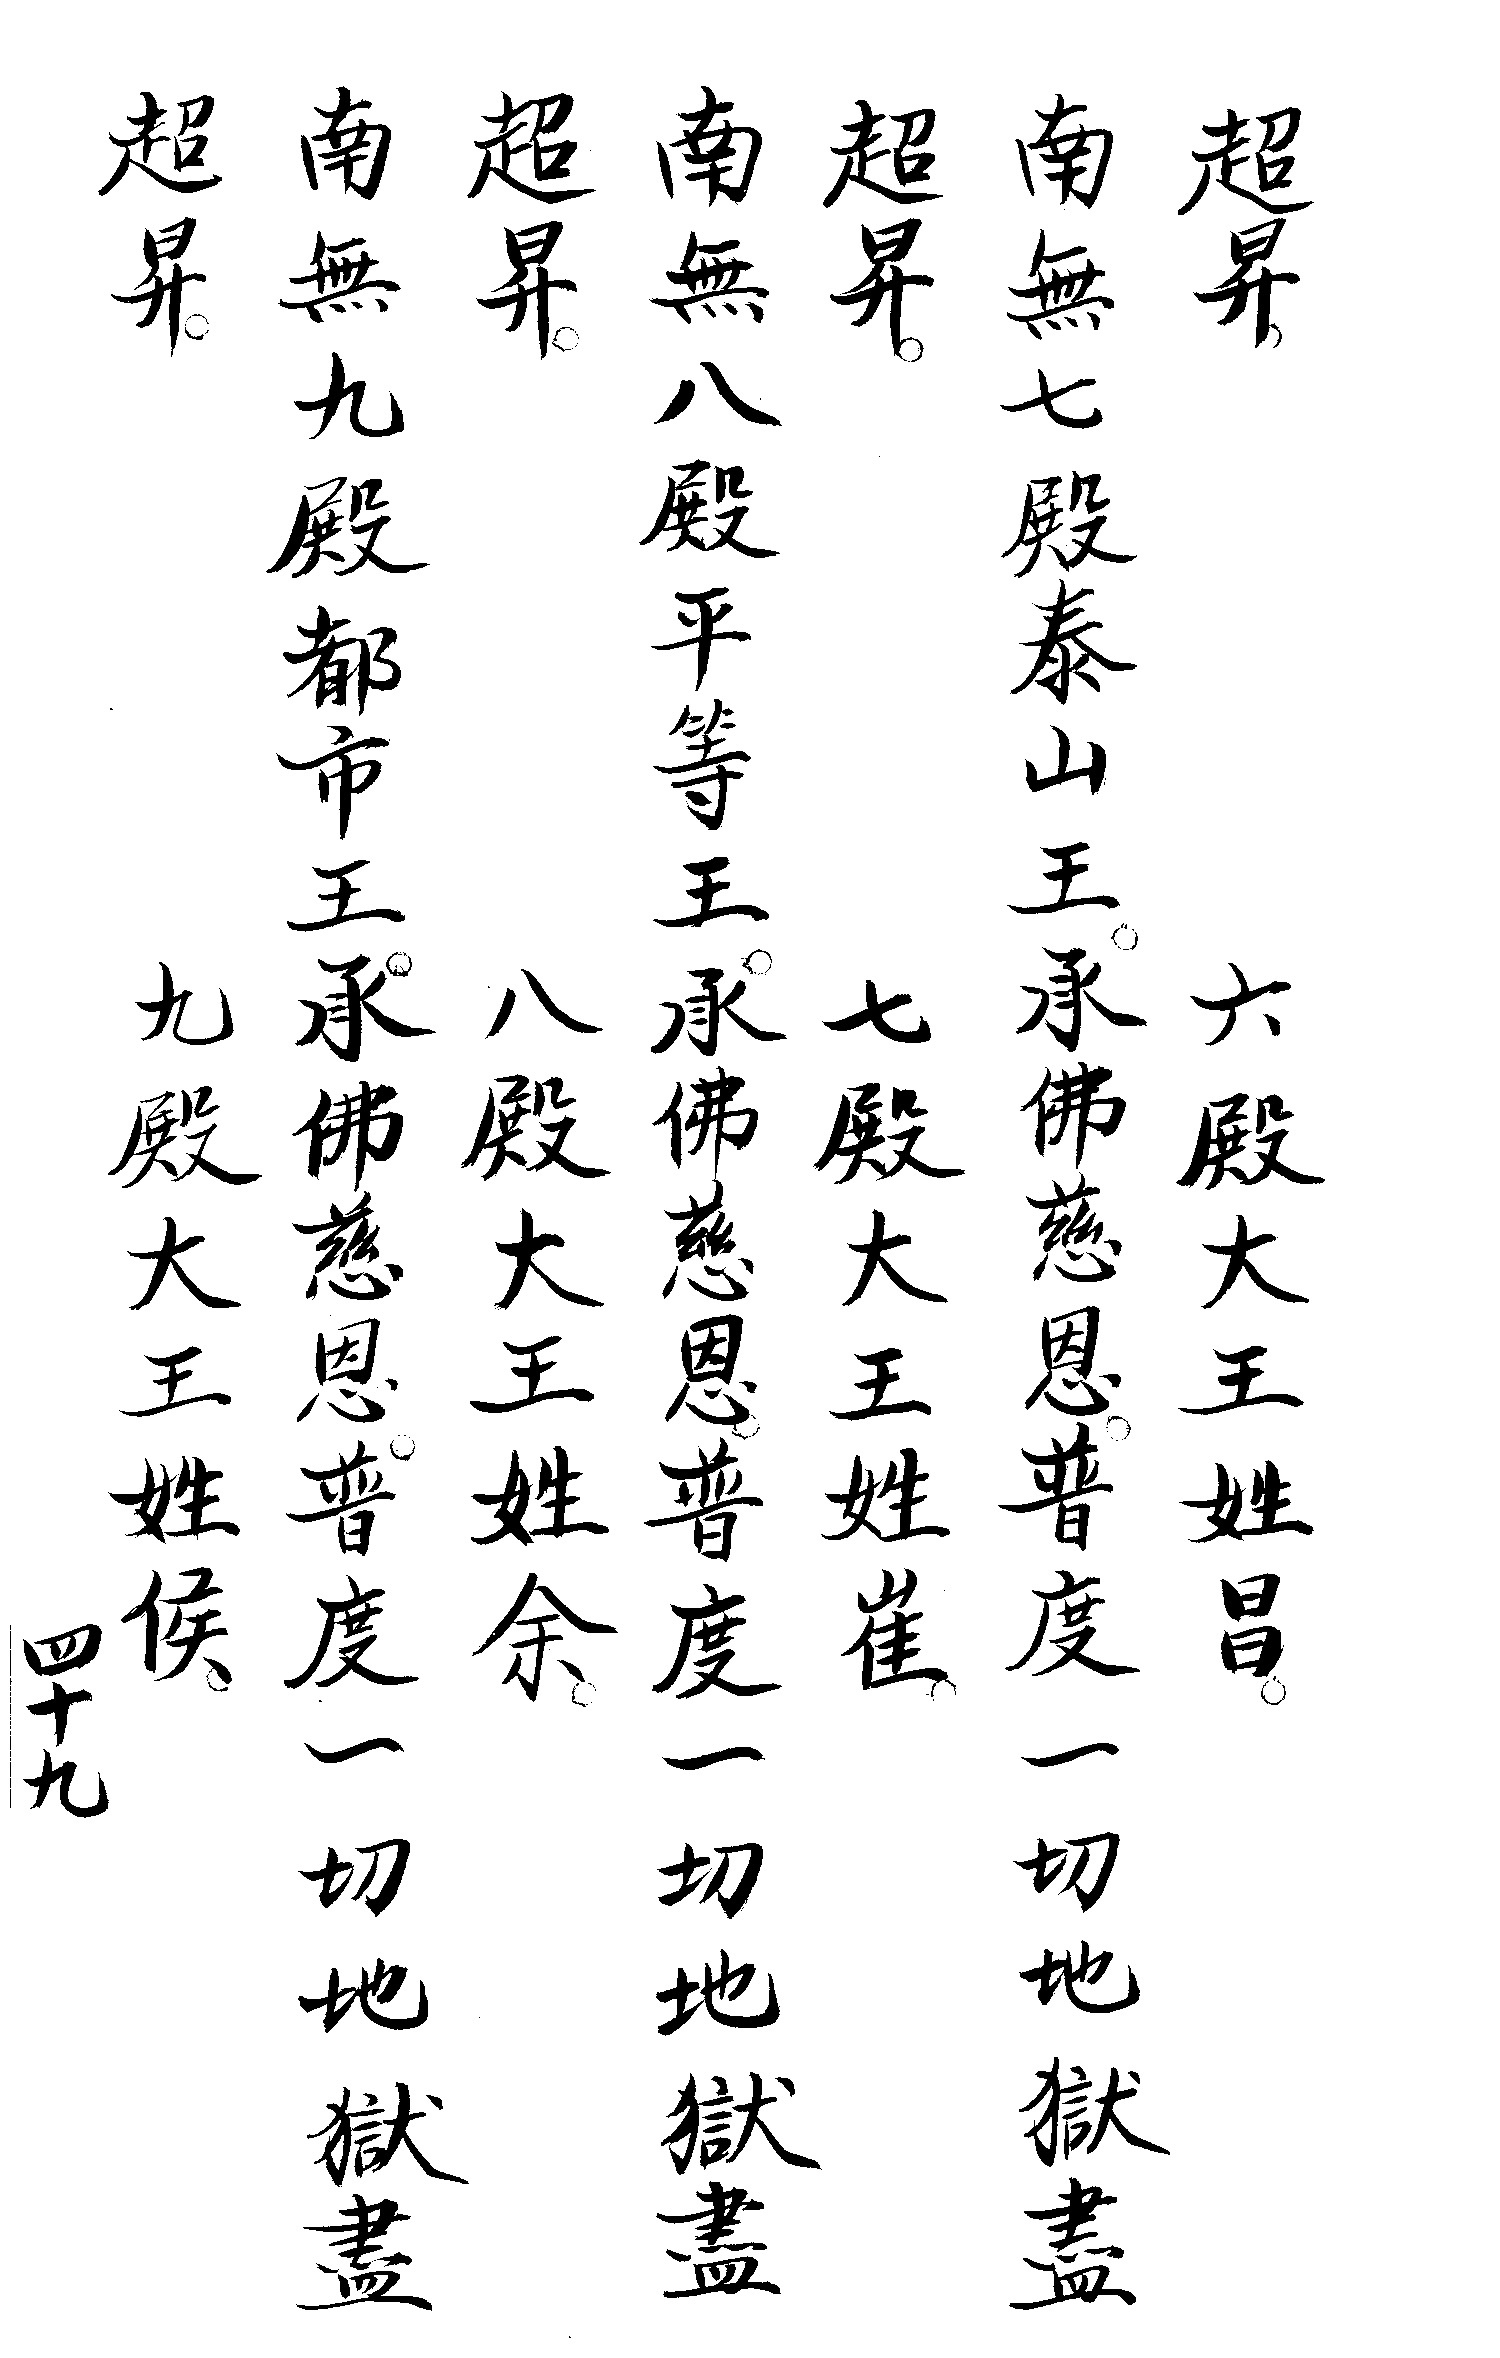 超昇。　六殿大王姓昌。
南無七殿泰山王。承佛慈恩。普度一切地獄盡
超昇。　七殿大王姓崔。
南無八殿平等王。承佛慈恩。普度一切地獄盡
超昇。　八殿大王姓余。
南無九殿都市王。承佛慈恩。普度一切地獄盡
超昇。　九殿大王姓侯。
四十九